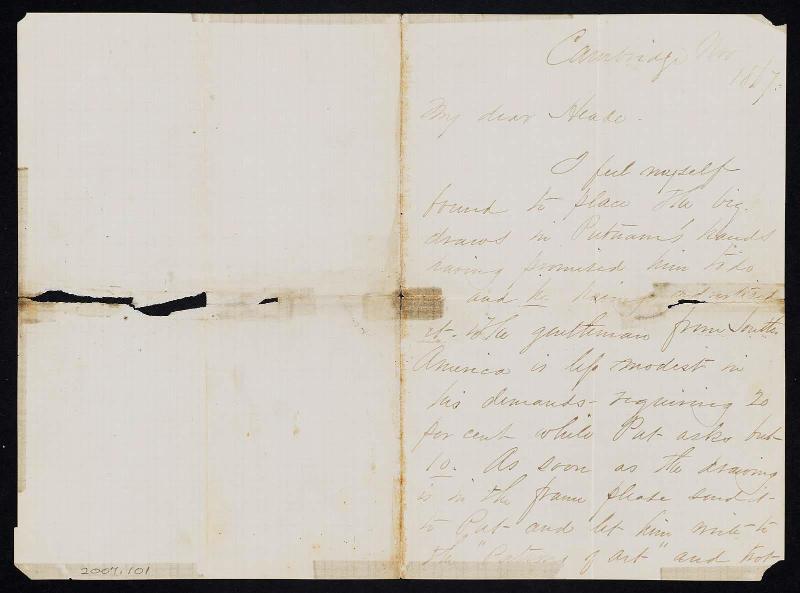 Cambridge Nov
1867.
My dear Heade.
I feel myself
bound to place the big
draws in Putnam's hands
having promised him to do
and he having advertised
it. The gentleman from South
America is less modest in
his demands - requiring 20
per cent while Put asks but
10. As soon as the drawing
is in the frame please send it
to Put and let him write to
the "Patrons of art" and trot
2007.101